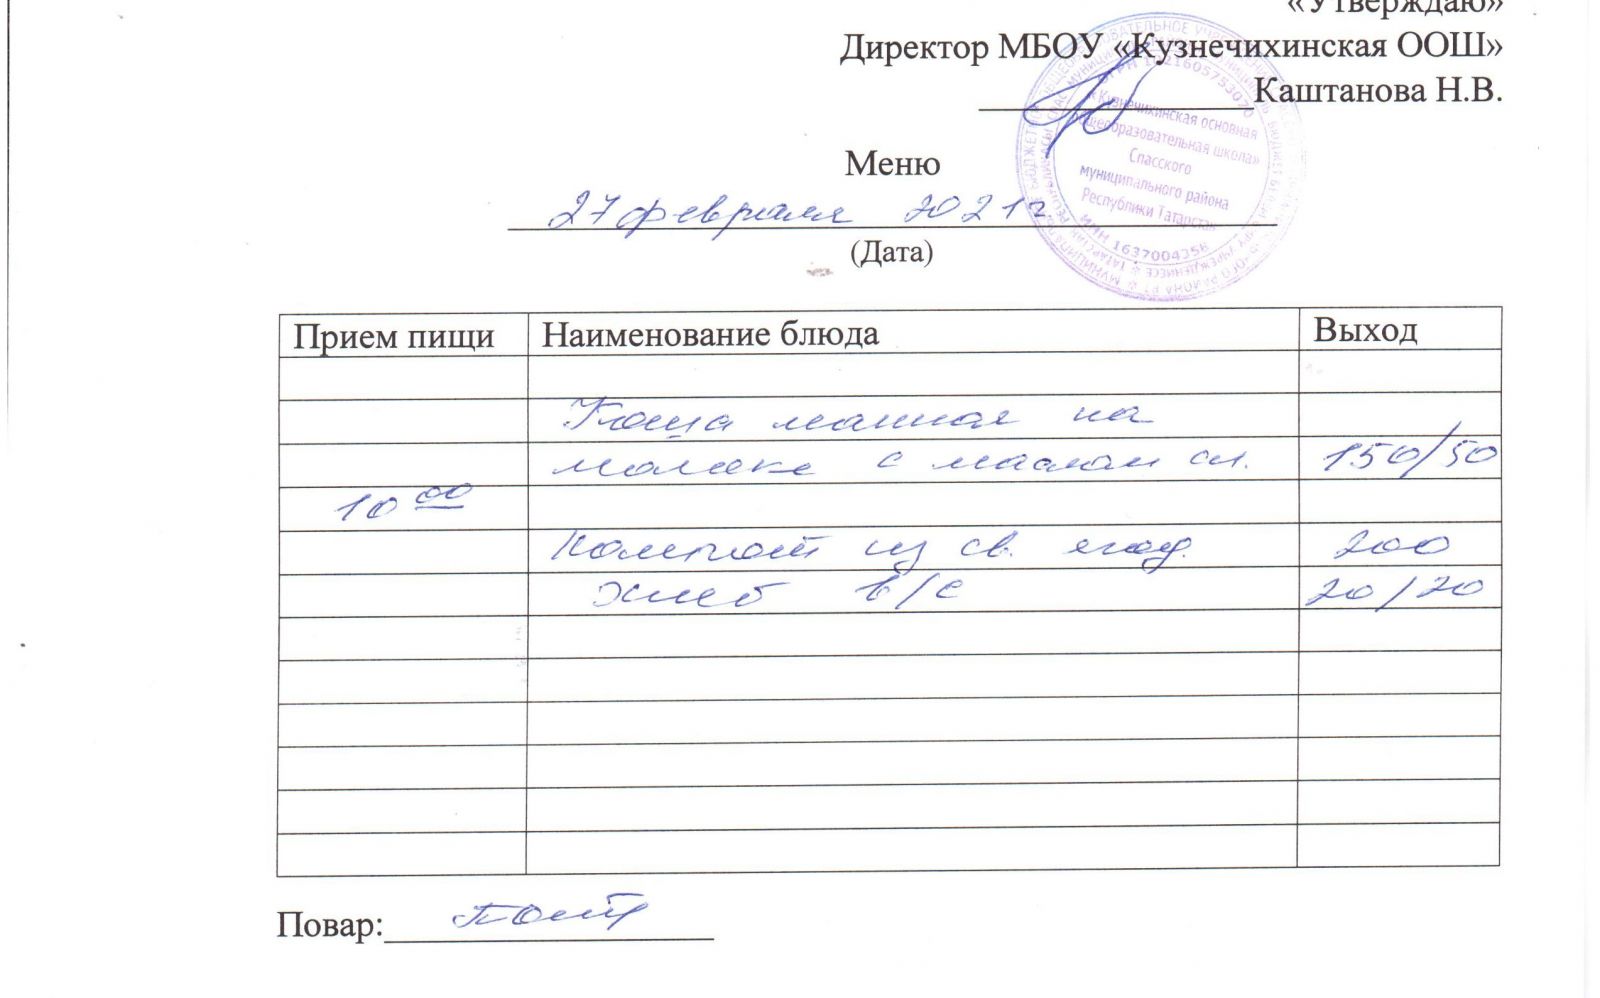 «Утверждаю»
Директор МБОУ «Кузнечихинская ООШ»
Каштанова Н.В.
«Кузнечихинская основная
общеобразовательная школа»
Спасского
муниципального района
Республики Татарстан
ИНН 1637004258
Меню
27 февраля 2021г
(Дата)
Прием пищи Наименование блюда Выход
Каша манная на
молоке с маслом сл. 150/50
10 00
Компот из св. ягод. 200
Хлеб в/с 20/20
Повар: